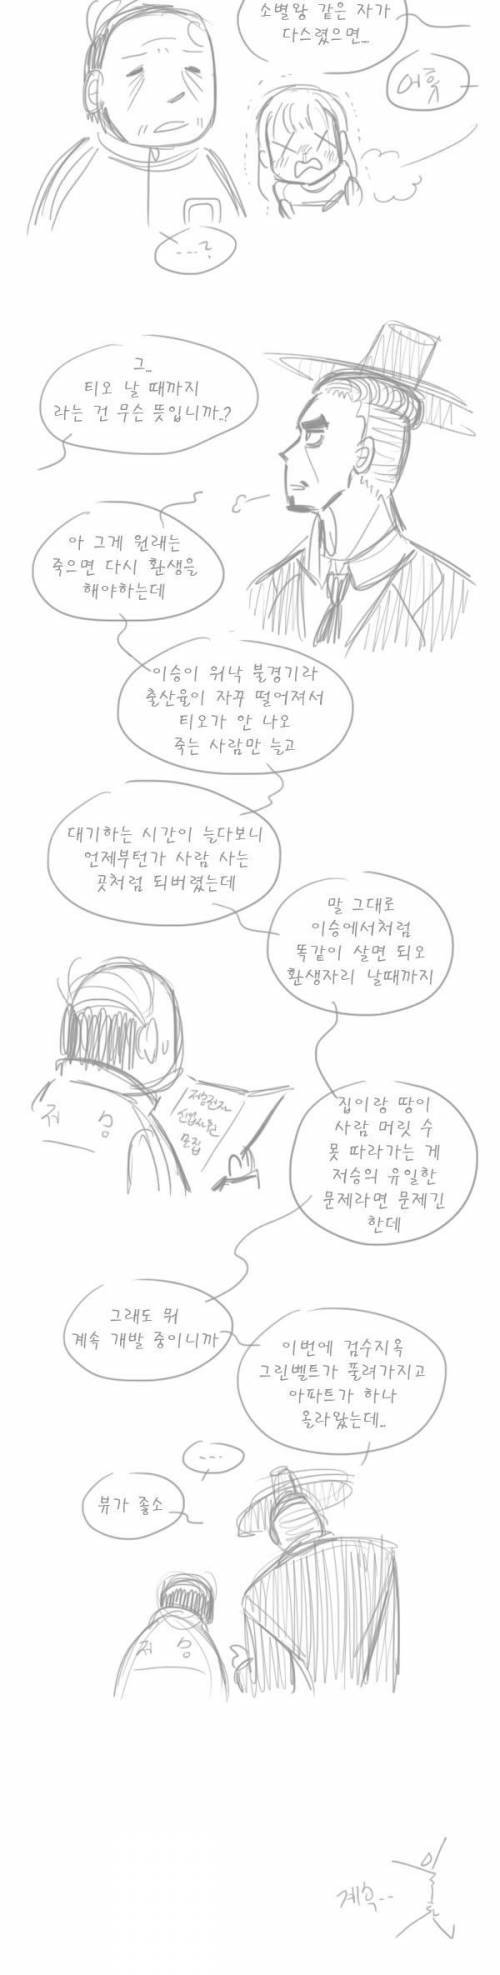 소별왕 같은 자가
다스렸으면..
어흑
...?
그..
티오 날 때까지
라는 건 무슨 뜻입니까..?
아 그게 원래는
죽으면 다시 환생을
해야하는데
이승이 워낙 불경기라
출산율이 자꾸 떨어져서
티오가 안 나오
죽는 사람만 늘고
대기하는 시간이 늘다보니
언제부턴가 사람 사는
곳처럼 되버렸는데
말 그대로
이승에서처럼
똑같이 살면 되오
환생자리 날때까지
저승전자
신입사원
모집
저 승
집이랑 땅이
사람 머릿 수
못 따라가는 게
저승의 유일한
문제라면 문제긴
한데
그래도 뭐
계속 개발 중이니까
이번에 검수지옥
그린벨트가 풀려가지고
아파트가 하나
올라왔는데..
...
뷰가 좋소
저 승
계속..